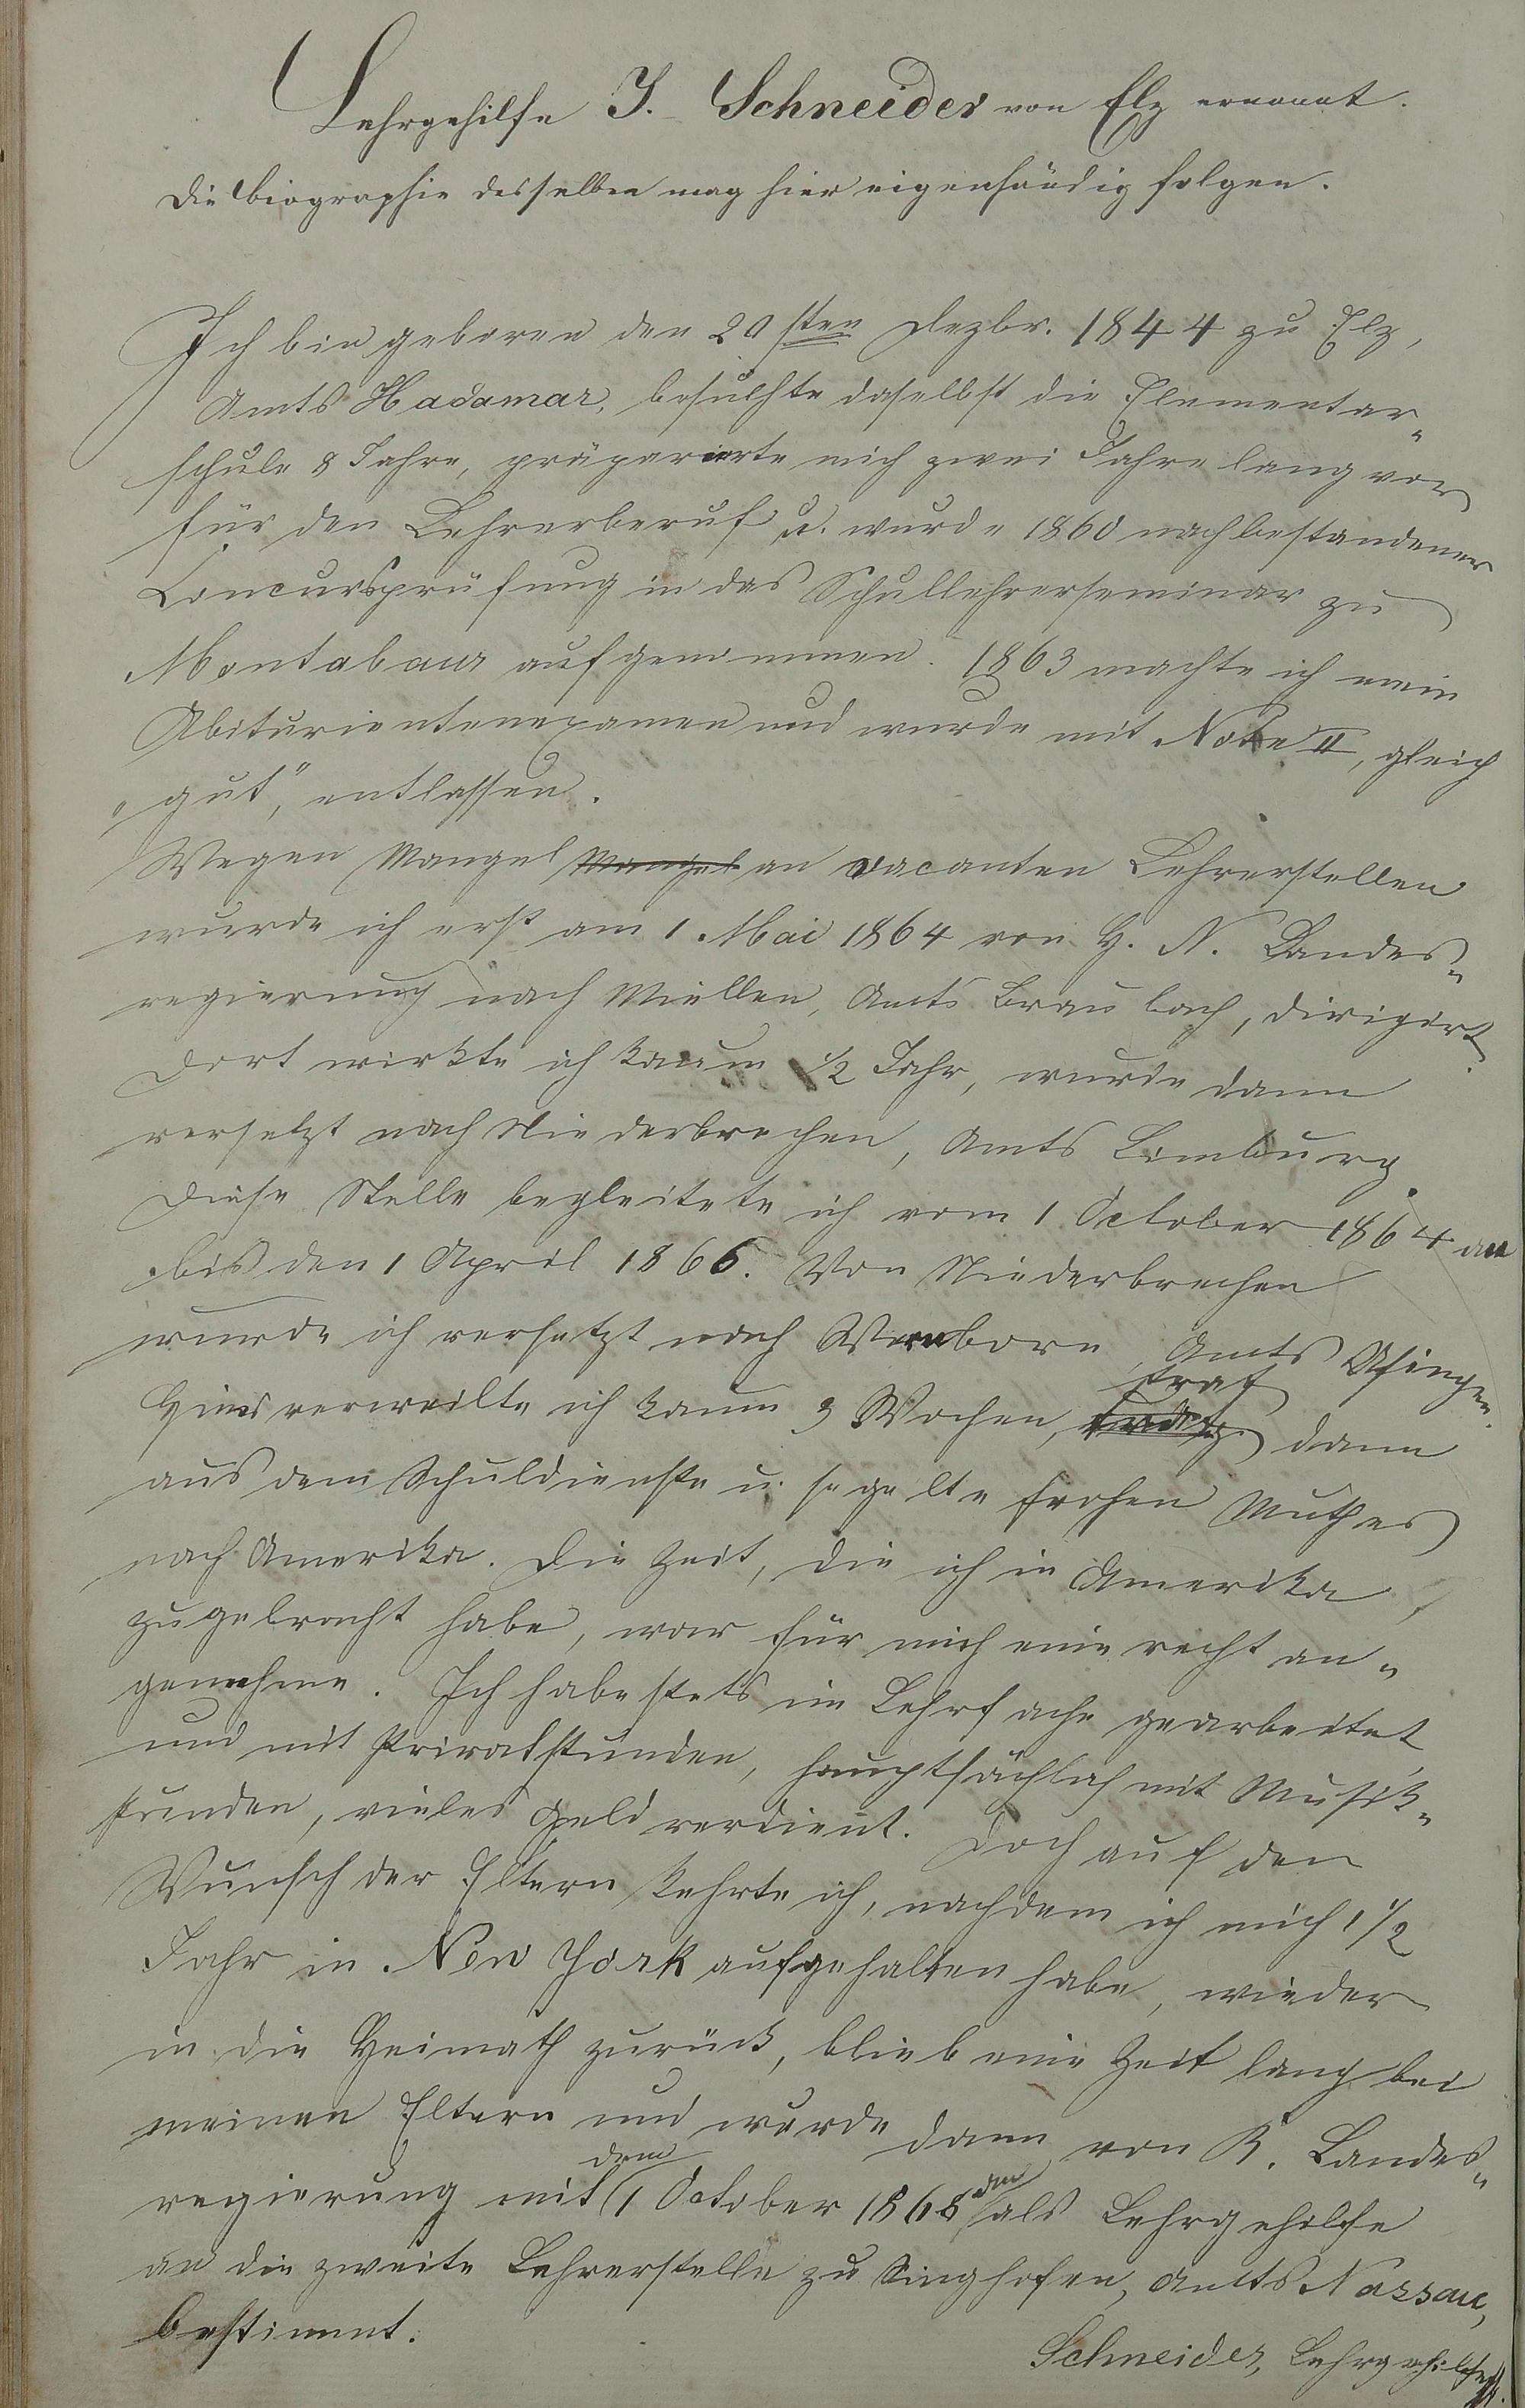 Lehrgehilfe J. Schneider von Elz ernannt.
Die Biographie desselben mag hier eigenhändig folgen.
Ich bin geboren den 20sten Dezbr. 1844 zu Elz,
Amts Hadamar, besuchte daselbst die Elementar-
schule 8 Jahre, präparierte mich zwei Jahre lang vor
für den Lehrerberuf u. wurde 1860 nach bestandener
Concursprüfung in das Schullehrerseminar zu
Montabaur aufgenommen. 1863 machte ich mein
Abiturientenexamen und wurde mit Note II, gleich
"gut", entlassen.
Wegen Mangel Mangel an vacanten Lehrerstellen
wurde ich erst am 1. Mai 1864 von H. N. Landes-
regierung nach Miellen, Amts Braubach, dirigirt.
Dort wirkte ich kaum 1/2 Jahr, wurde dann
versetzt nach Niederbrechen, Amts Limburg.
Diese Stelle begleitete ich vom 1 October 1864 an
bis den 1 April 1866. Von Niederbrechen
wurde ich versetzt nach Wernborn, Amts Usingen.
Hier verweilte ich kaum 3 Wochen, trat dann
aus dem Schuldienste u. segelte frohen Muthes
nach Amerika. Die Zeit, die ich in Amerika
zugebracht habe, war für mich eine recht an-
genehme. Ich habe stets im Lehrfache gearbeitet
und mit Privatstunden, hauptsächlich mit Musik-
stunden, vieles Geld verdient. Doch auf den
Wunsch der Eltern kehrte ich, nachdem ich mich 1 1/2
Jahr in New York aufgehalten habe, wieder
in die Heimath zurück, blieb eine Zeit lang bei
meinen Eltern und wurde dann von K. Landes-
regierung mit dem 1 October 1868 als Lehrgehilfe
an die zweite Lehrerstelle zu Singhofen, Amts Nassau,
bestimmt.
Schneider, Lehrgehilfe.